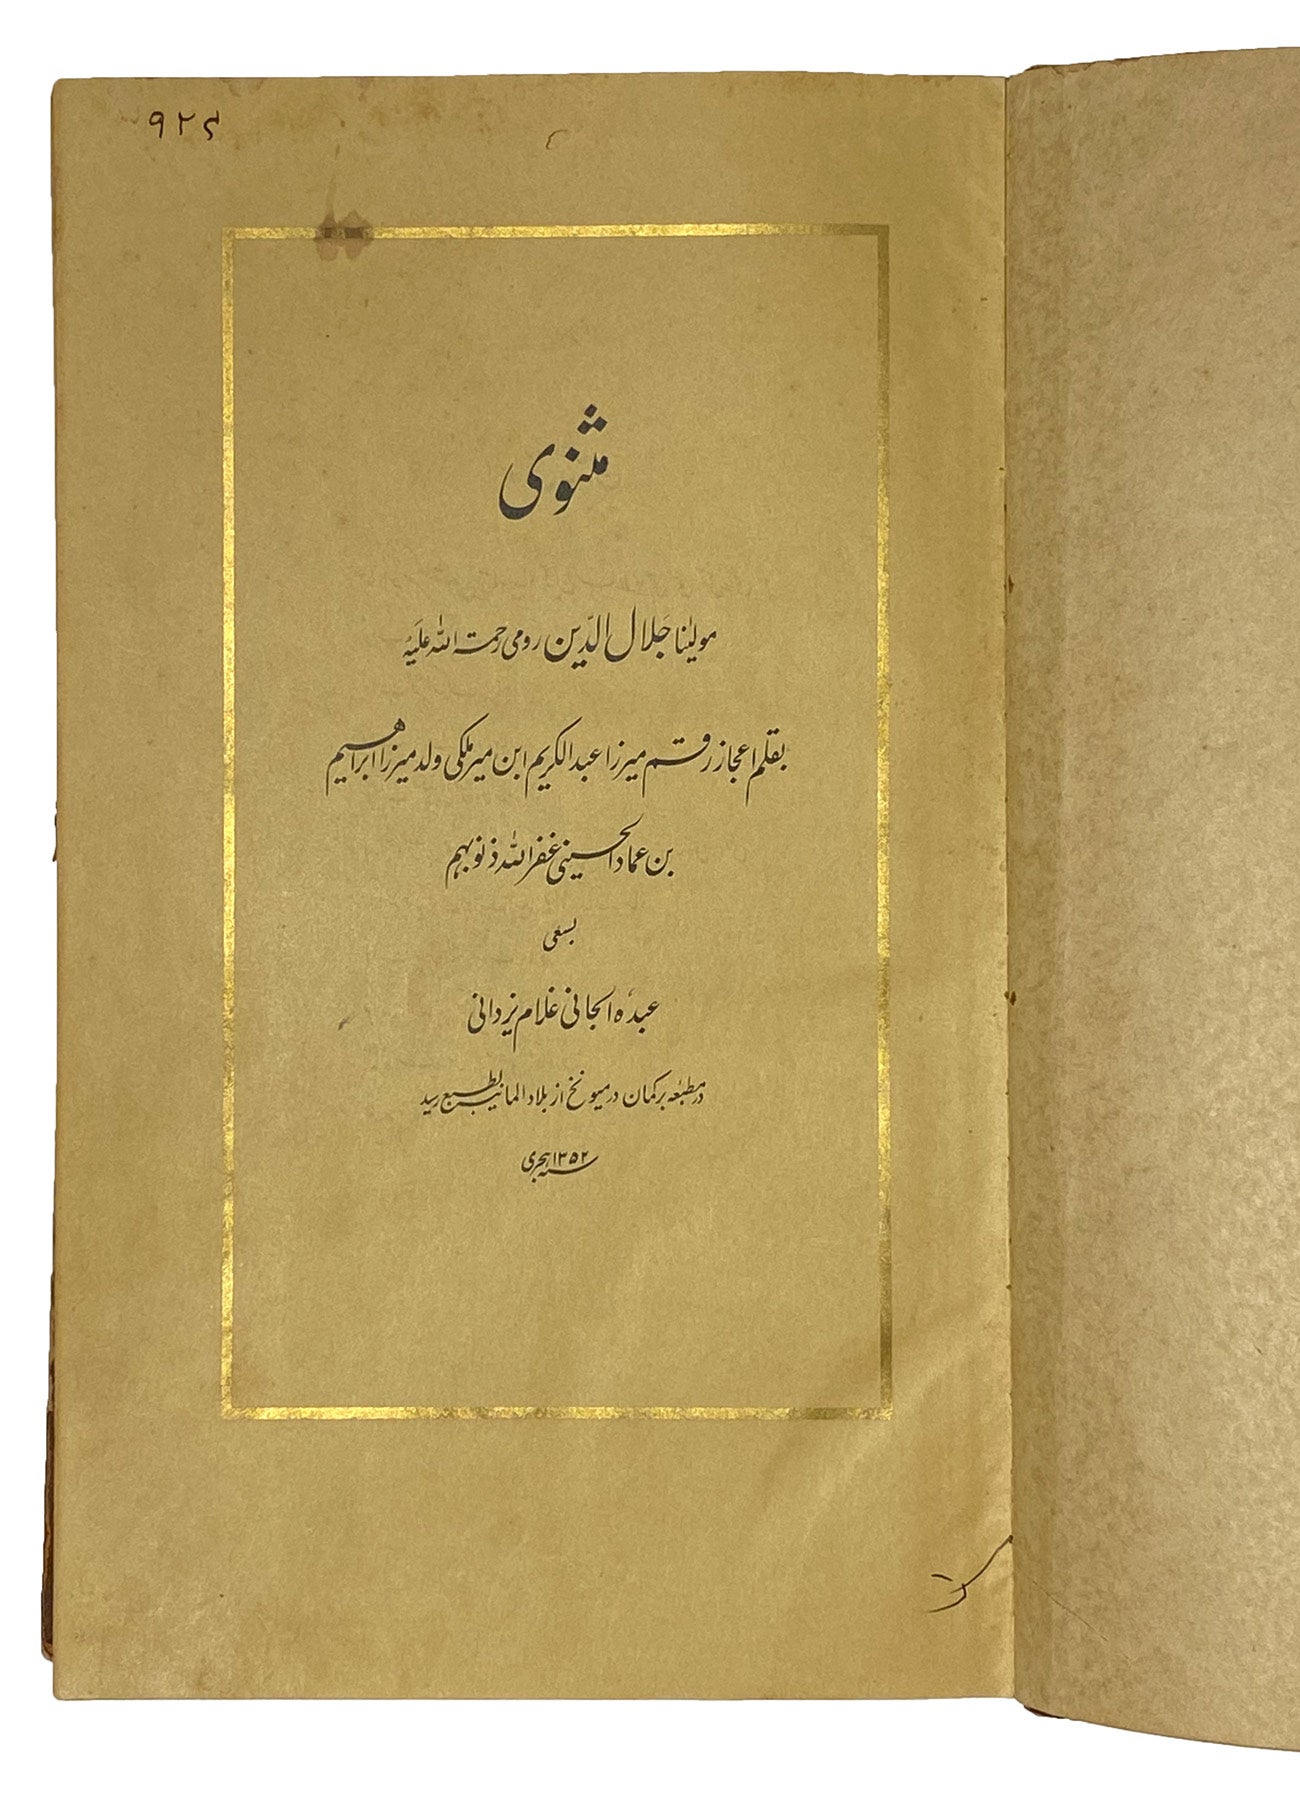 ۹۲۶
مثنوی
مولٰنا جلال الدّین رومی رحمۃ اللہ علیہ
بقلم اعجاز رقم میرزا عبدالکریم ابن میر ملکی ولد میرزا ابراهیم
بن عماد الحسینی غفر اللہ ذنوبہم
بسعی
عبدہ الجانی غلام یزدانی
در مطبعہ برکمان در میونخ از بلاد المانیہ بطبع رسید
سنہ ۱۳۵۲ ہجری